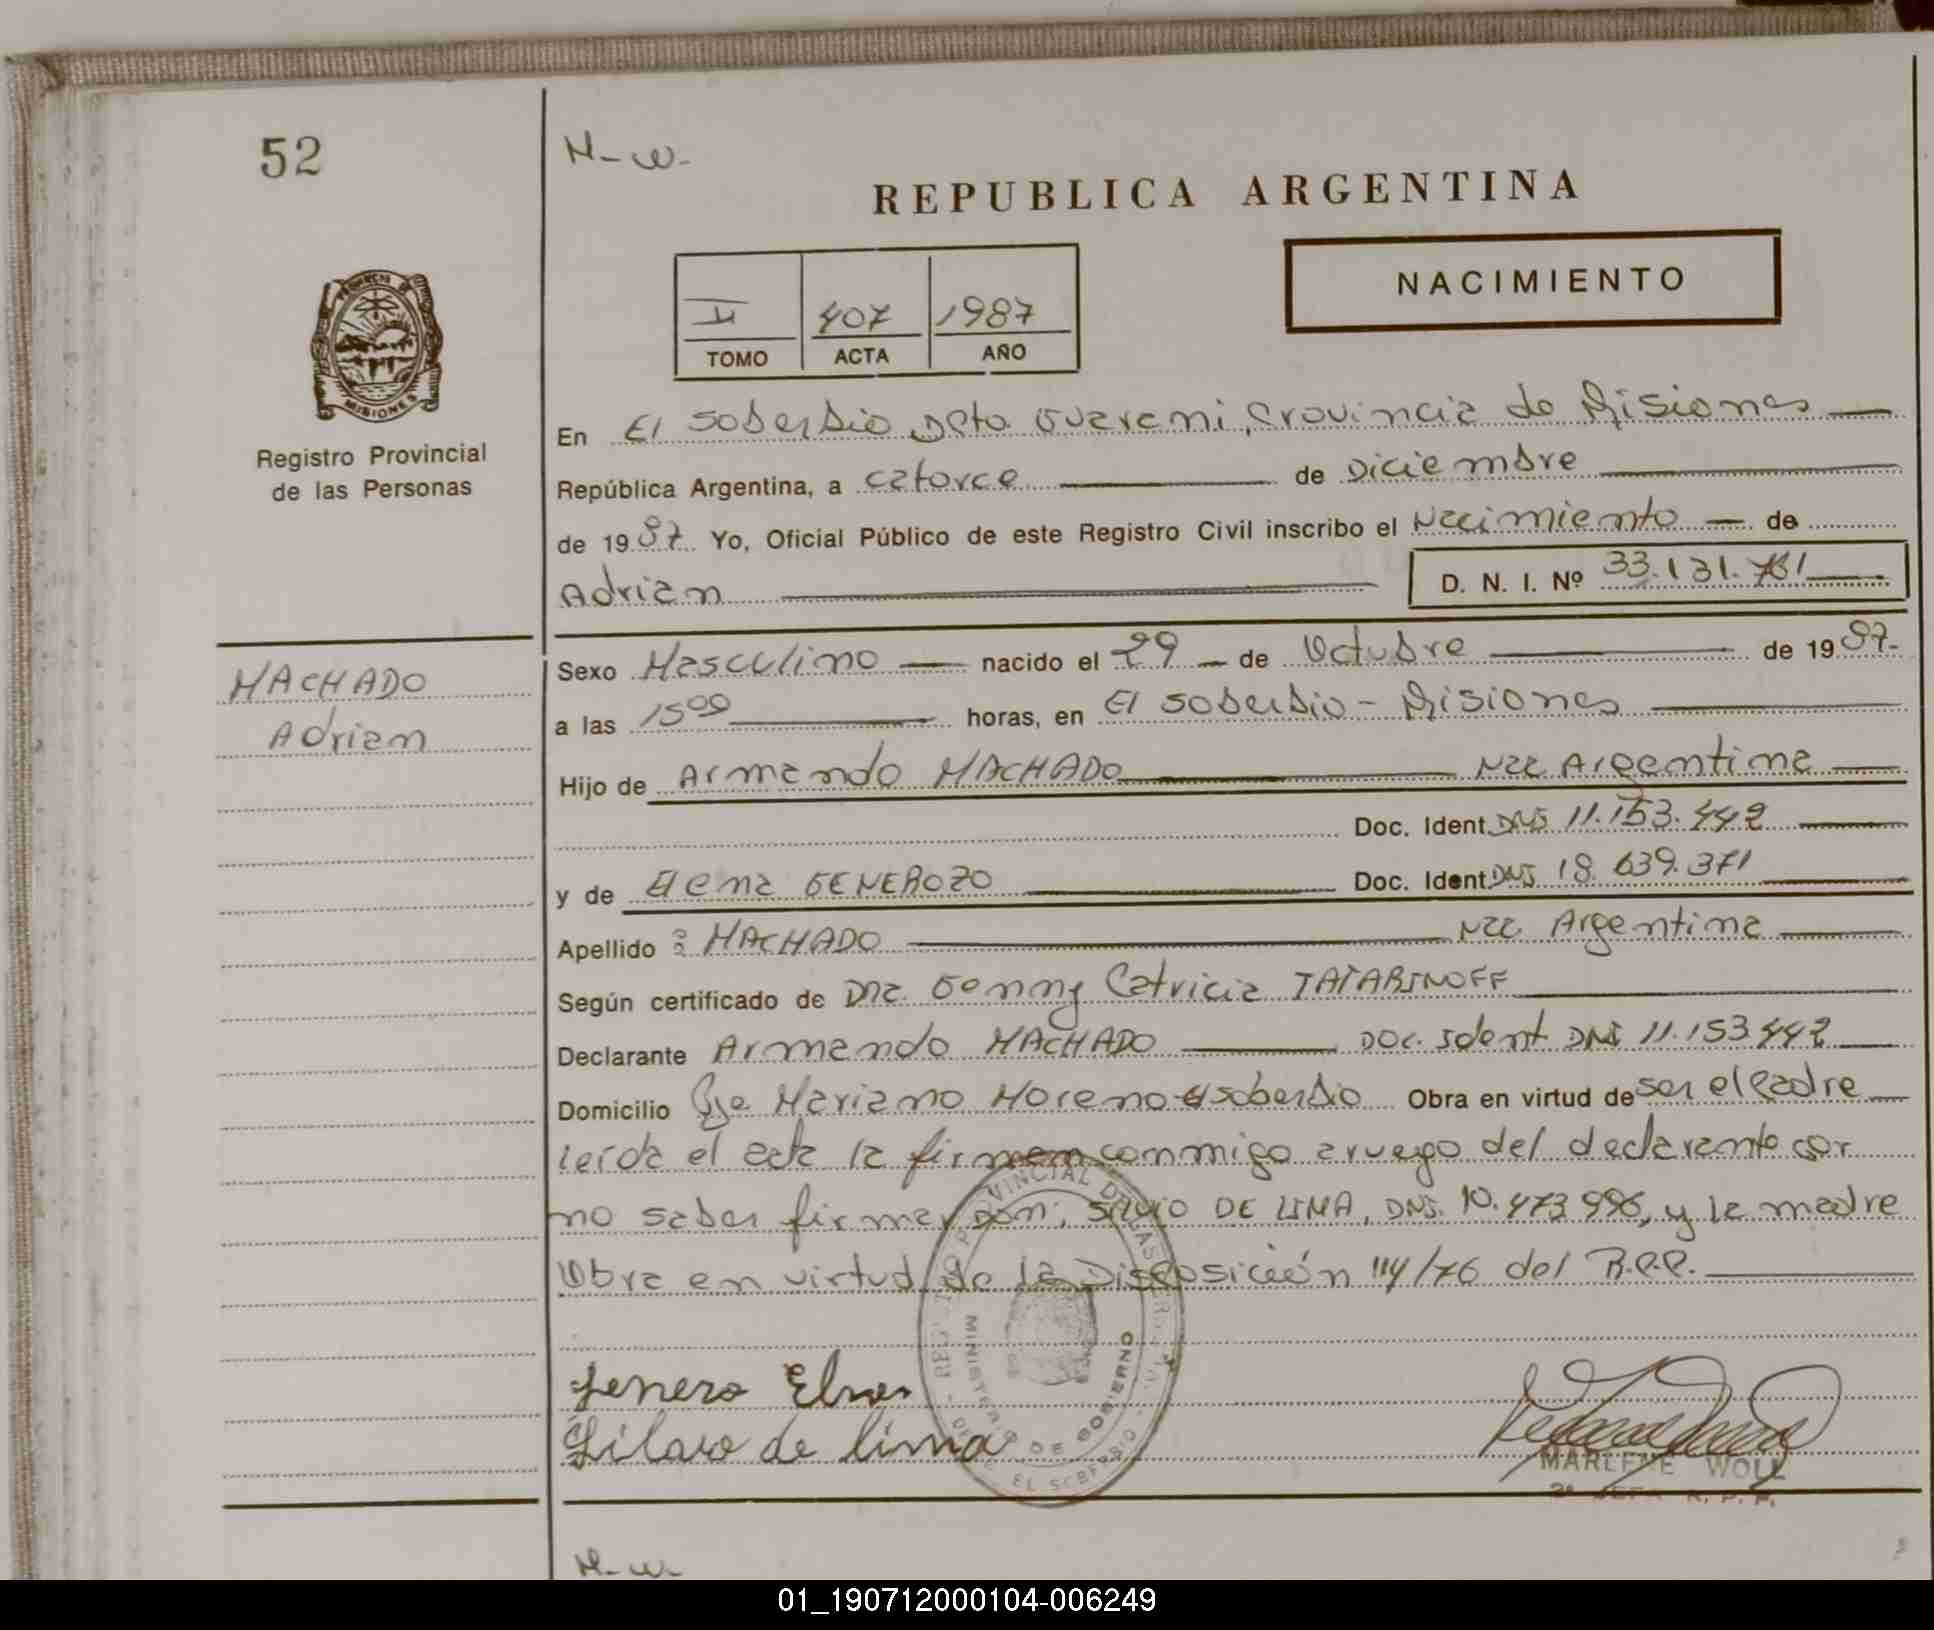 52
M-W-
REPUBLICA ARGENTINA
II 407 1987
TOMO ACTA AÑO
NACIMIENTO
PROVINCIA DE
MISIONES
Registro Provincial
de las Personas
En El Soberbio Dpto Guarani, Provincia de Misiones
República Argentina, a catorce de Diciembre
de 1987 Yo, Oficial Público de este Registro Civil inscribo el Nacimiento de
Adrian D. N. I. Nº 33.131.761
MACHADO
Adrian
Sexo Masculino nacido el 29 de Octubre de 1987-
a las 15⁰⁰ horas, en El Soberbio - Misiones
Hijo de Armando MACHADO Nac Argentina
Doc. Ident. DNI 11.153.442
y de Elena GENEROZO Doc. Ident. DNI 18.639.371
Apellido MACHADO Nac Argentina
Según certificado de Dra. Genny Patricia TATARINOFF
Declarante Armando MACHADO Doc. Ident DNI 11.153.442
Domicilio Bje Mariano Moreno-El Soberbio Obra en virtud de ser el Padre
leída el acta la firman conmigo a ruego del declarante por
no saber firmar Don; SILVIO DE LIMA, DNI. 10.473.996, y la madre
Obra en virtud de la Disposición 114/76 del R.P.P.
REGISTRO PROVINCIAL DE LAS PERSONAS
MINISTERIO DE GOBIERNO
EL SOBERBIO
de lima
MARLENE WOLL
2ª JEFA R. P. P.
M-W-
01_190712000104-006249